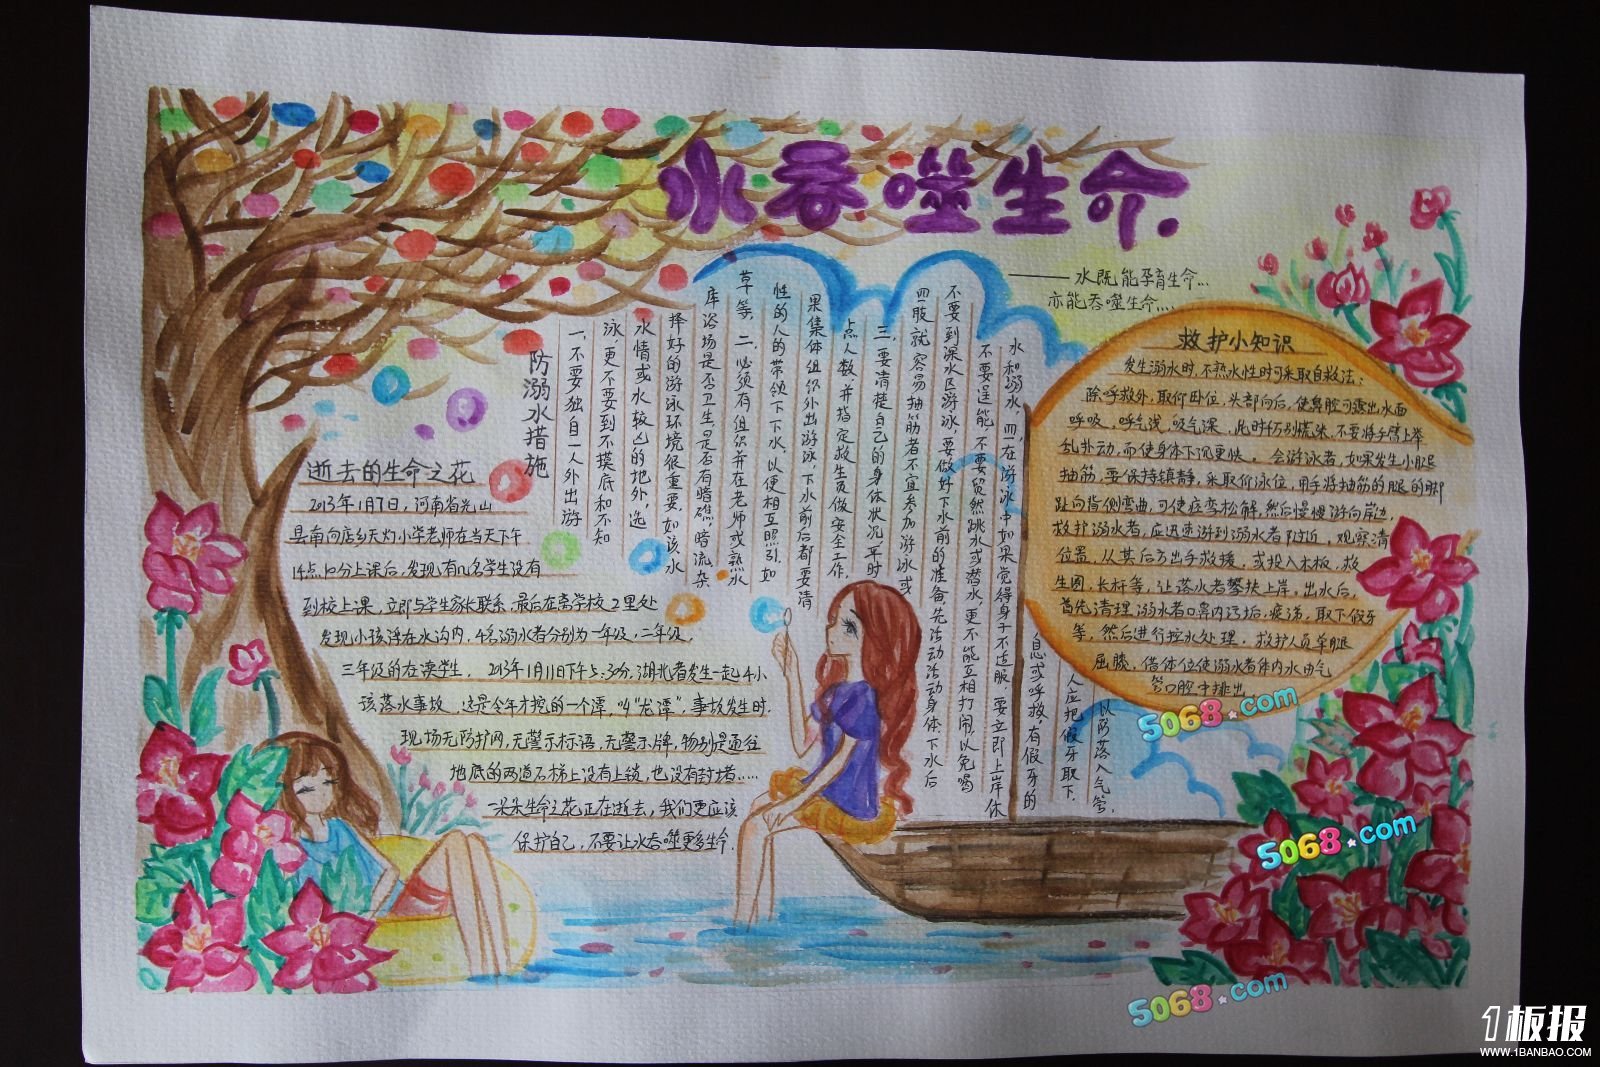 水吞噬生命.
——水既能孕育生命...
亦能吞噬生命...
逝去的生命之花
2013年1月7日,河南省光山
县南向店乡天灯小学老师在当天下午
14点10分上课后,发现有几名学生没有
到校上课,立即与学生家长联系,最后在离学校2里处
发现小孩浮在水沟内,4名溺水者分别为一年级,二年级,
三年级的在读学生. 2013年1月11日下午5:30分,湖北省发生一起4小
孩落水事故,这是今年才挖的一个潭,叫“龙潭”,事故发生时,
现场无防护网,无警示标语,无警示牌,特别是通往
地底的两道石梯上没有上锁,也没有封堵……
一朵朵生命之花正在逝去,我们更应该
保护自己,不要让水吞噬更多生命.
防溺水措施
一、不要独自一人外出游
泳,更不要到不摸底和不知
水情或水较凶的地外,选
择好的游泳环境很重要,如该水
库浴场是否卫生,是否有暗礁,暗流,杂
草等. 二、必须有组织并在老师或熟水
性的人的带领下下水,以便相互照引,如
果集体组织外出游泳,下水前后都要清
点人数,并指定救生员做安全工作.
三、要清楚自己的身体状况,平时
四肢就容易抽筋者不宜参加游泳或
不要到深水区游泳,要做好下水前的准备,先活动活动身体,下水后
不要逞能,不要贸然跳水或潜水,更不能互相打闹,以免喝
水和溺水,四、在游泳中如果觉得身子不适服,要立即上岸休
息或呼救,有假牙的
人应把假牙取下,
以防落入气管.
救护小知识
发生溺水时,不熟水性时可采取自救法:
除呼救外,取仰卧位,头部向后,使鼻腔可露出水面
呼吸,呼气浅,吸气深,此时千万别慌张,不要将手臂上举
乱扑动,而使身体下沉更快。会游泳者,如果发生小腿
抽筋,要保持镇静,采取仰泳位,用手将抽筋的腿的脚
趾向背侧弯曲,可使痉挛松解,然后慢慢游向岸边,
救护溺水者,应迅速游到溺水者附近,观察清
位置,从其后方出手救援,或投入木板,救
生圈,长杆等,让落水者攀扶上岸。出水后,
首先清理溺水者口鼻内污垢,痰涕,取下假牙
等,然后进行控水处理,救护人员单腿
屈膝,借体位使溺水者体内水由气
管口腔中排出
5068.com
5068.com
5068.com
1板报
WWW.1BANBAO.COM